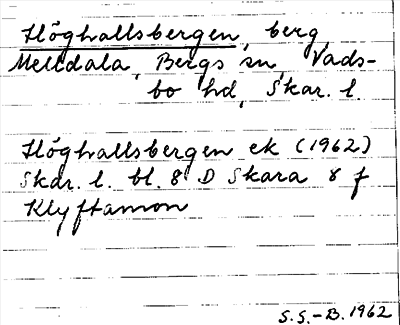 Höghallsbergen, berg
Melldala, Bergs sn, Vads-
bo hd, Skar. l.
Höghallsbergen ek (1962)
Skar. l. bl. 8 D Skara 8 f
Klyftamon
S.S.-B. 1962